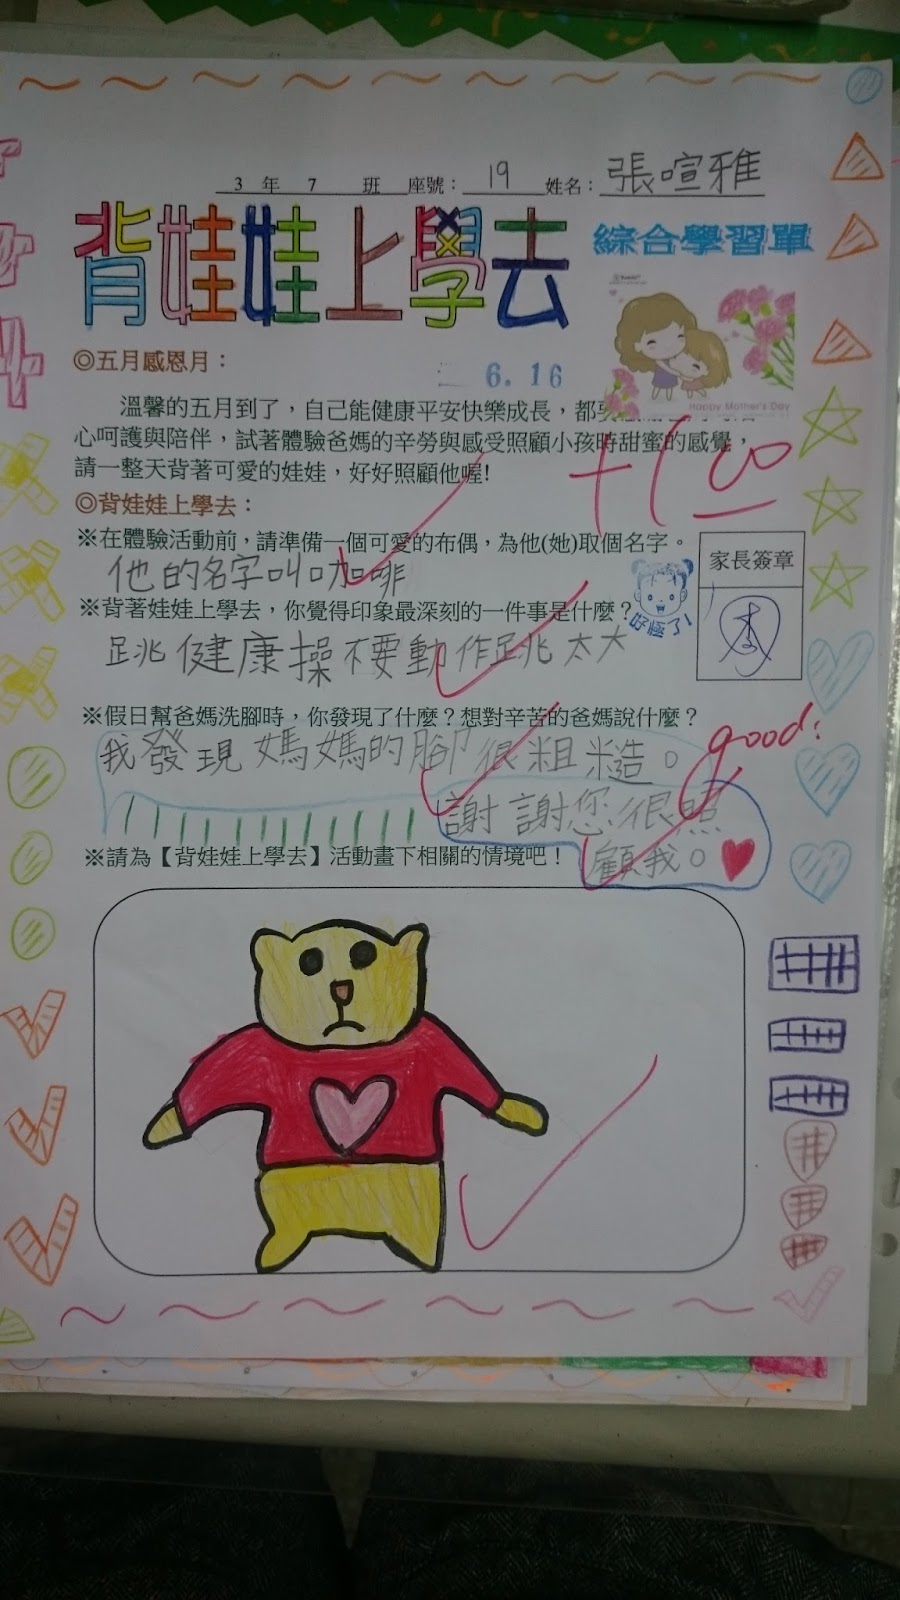 3 年 7 班 座號：19 姓名：張喧雅
背娃娃上學去 綜合學習單
Happy Mother's Day
◎五月感恩月：
6. 16
溫馨的五月到了，自己能健康平安快樂成長，都要
心呵護與陪伴，試著體驗爸媽的辛勞與感受照顧小孩時甜蜜的感覺，
請一整天背著可愛的娃娃，好好照顧他喔!
◎背娃娃上學去：
※在體驗活動前，請準備一個可愛的布偶，為他(她)取個名字。
他的名字叫咖啡
家長簽章
李
好極了!
※背著娃娃上學去，你覺得印象最深刻的一件事是什麼？
跳健康操不要動作跳太大
※假日幫爸媽洗腳時，你發現了什麼？想對辛苦的爸媽說什麼？
我發現媽媽的腳很粗糙。
good!
謝謝您很照
顧我。
※請為【背娃娃上學去】活動畫下相關的情境吧！